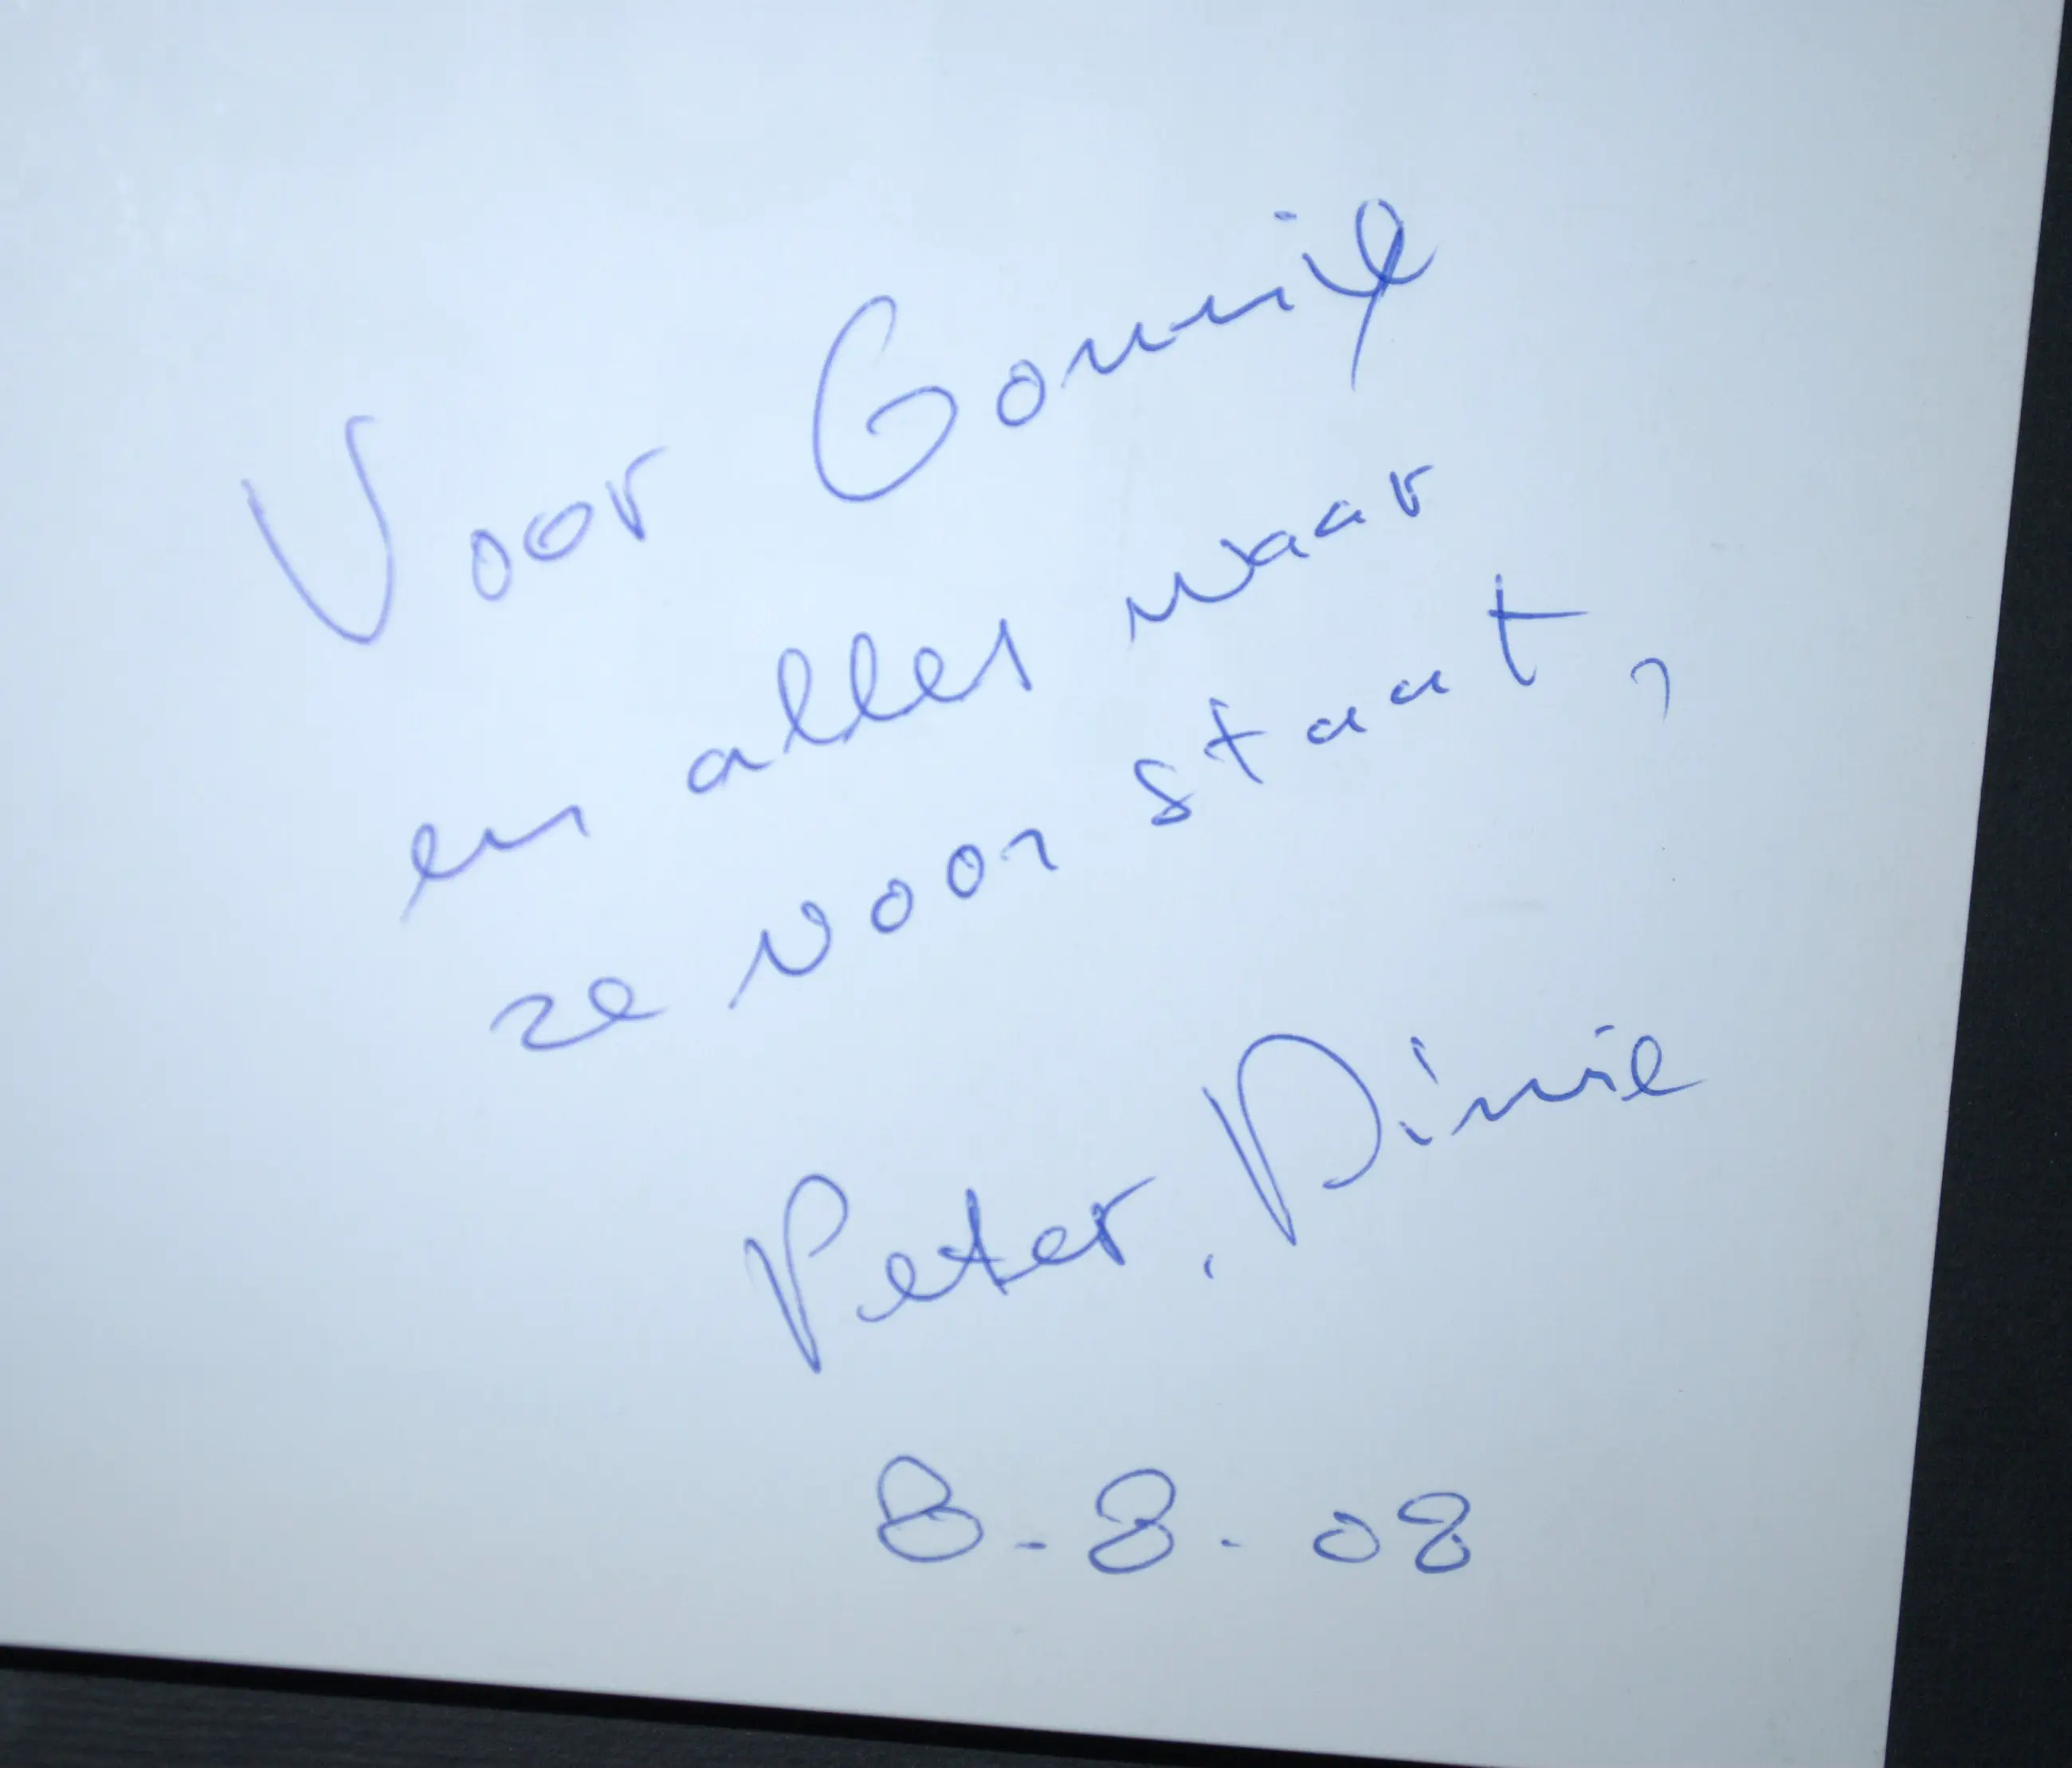 Voor
en alles waar
ze voor staat,
Peter.
8-8-08